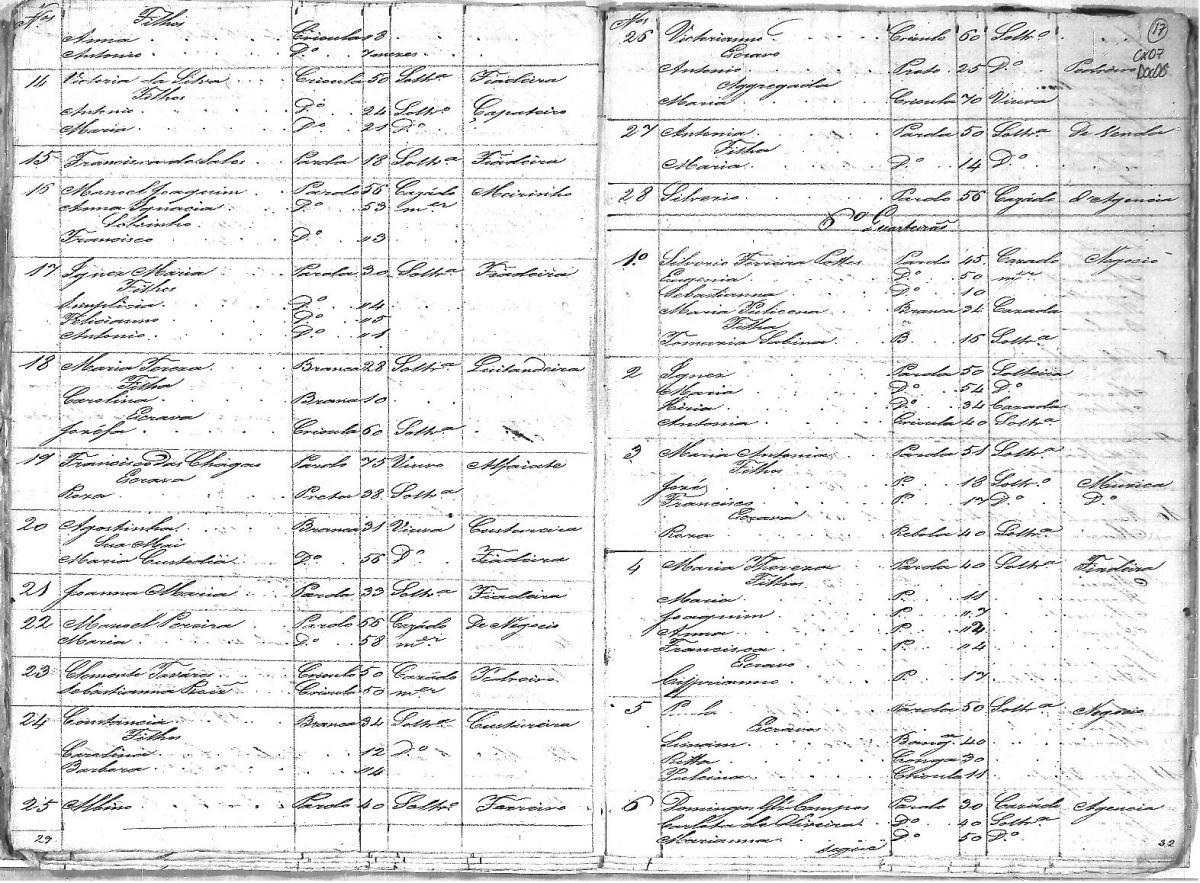 Nos Filhos
Anna Crioula 3
Antonio Do 7 mezes
14 Victoria da Silva Crioula 50 Solta Fiadeira
Filhos
Antonio Do 24 Solto Çapateiro
Maria Do 21 Do
15 Francisca de Sales Parda 18 Solta Fiadeira
16 Manoel Joaquim Pardo 56 Cazádo Meirinho
Anna Ignacia Do 53 mer
Sobrinho
Francisco Do 13
17 Ignez Maria Parda 30 Solta Fiadeira
Filhos
Simplicia Do 14
Felicianno Do 5
Antonio Do 1
18 Maria Tereza Branca 28 Solta Quitandeira
Filha
Carolina Branca 10
Escrava
Jozéfa Crioula 60 Solta
19 Francisco das Chagas Pardo 75 Viuvo Alfaiate
Escrava
Roza Preta 38 Solta
20 Agostinha Branca 31 Viuva Custureira
Sua Mai
Maria Custodia Do 56 Do Fiadeira
21 Joanna Maria Parda 33 Solta Fiadeira
22 Manoel Pereira Pardo 66 Cazádo De Negocio
Maria Do 58 mer
23 Clemente Taváres Crioulo 50 Cazádo Pedreiro
Sebastianna Crioula 50 mer
24 Constáncia Branca 34 Solta Custureira
Filhos
Carolina 12 Do
Barbara 14
25 Albino Pardo 40 Solto Ferreiro
29
Nos
17
Cx07
Doc08
26 Victorianno Crioulo 60 Solto
Escravo
Antonio Preto 25 Do Pedreiro
Aggregada
Maria Crioula 70 Viuva
27 Antonia Parda 50 Solta De Venda
Filha
Maria Do 14 Do
28 Silverio Pardo 56 Cazádo d'Agencia
6o Quarteirão
1o Silverio Ferreira Pardo 45 Cazado Negocio
Eugenia Do 50 mer
Sebastianna Do 10
Maria Branca 34 Cazada
Filha
Tomazia Sabina B. 16 Solta
2 Ignez Parda 50 Solteira
Maria Do 54 Do
Do 34 Cazada
Antonia Crioula 40 Solta
3 Maria Antonia Parda 51 Solta
Filhos
Jozé P. 18 Solto Muzica
Francisco P. 17 Do Do
Escrava
Roza Rebola 40 Solta
4 Maria Thereza Parda 40 Solta Fiadeira
Filhos
Maria P. 11
Joaquim P. 7
Anna P. 4
Francisca P. 4
Escravo
Cypprianno P. 17
5 Paula Parda 50 Solta Negocio
Escravos
Bengª 40
Ritta Conga 30
Crioula 11
6 Domingos Campos Pardo 30 Cazádo Agencia
Carlota de Oliveira Do 40 Solta
Marianna Do 50 Do
Segue
32